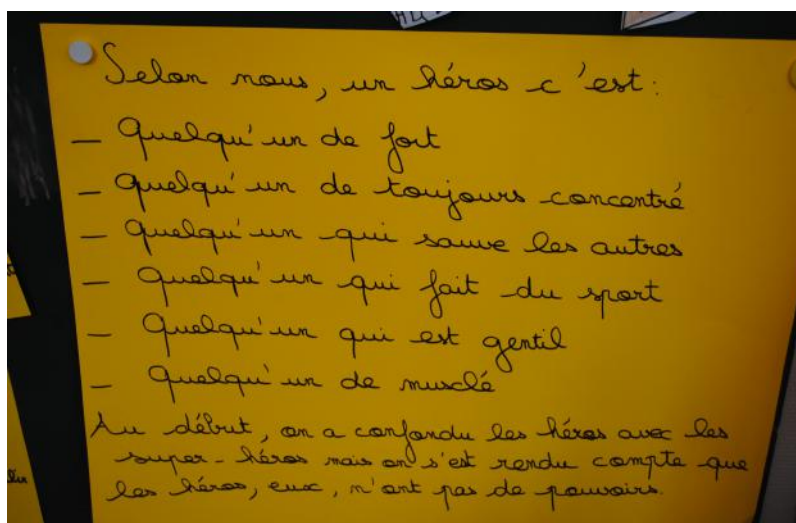 Selon nous, un héros c'est :
– Quelqu'un de fort
– Quelqu'un de toujours concentré
– Quelqu'un qui sauve les autres
– Quelqu'un qui fait du sport
– Quelqu'un qui est gentil
– Quelqu'un de musclé
Au début, on a confondu les héros avec les
super-héros mais on s'est rendu compte que
les héros, eux, n'ont pas de pouvoirs.